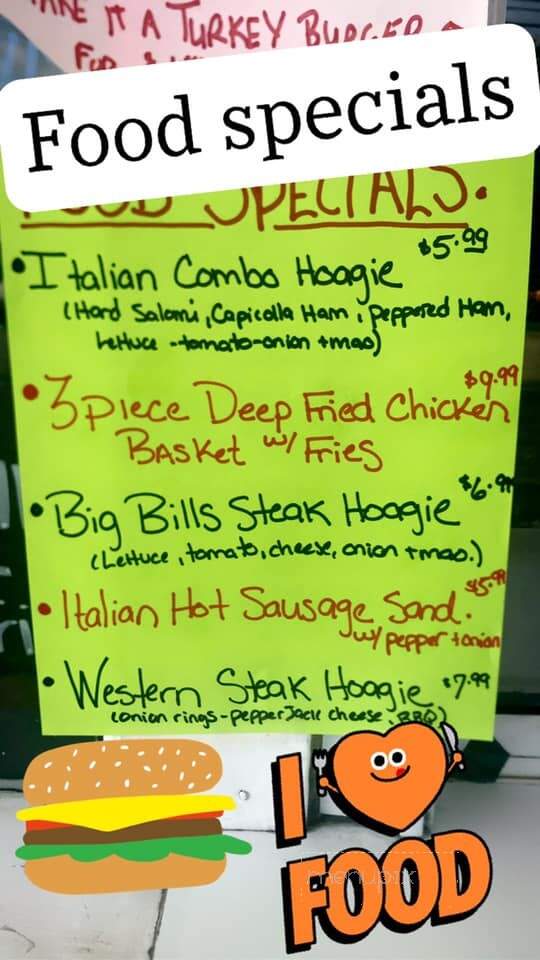 IT A TURKEY BURGER
Food specials
FOOD SPECIALS.
• Italian Combo Hoagie $5.99
(Hard Salami, Capicolla Ham, Peppered Ham,
Lettuce -tomato-onion +mao)
• 3 piece Deep Fried Chicken $9.99
Basket w/ Fries
• Big Bills Steak Hoagie $6.99
(Lettuce, tomato, cheese, onion +mao.)
• Italian Hot Sausage Sand. $5.99
w/ pepper +onion
• Western Steak Hoagie $7.99
(onion rings - pepper Jack cheese, BBQ)
I
FOOD
menupix